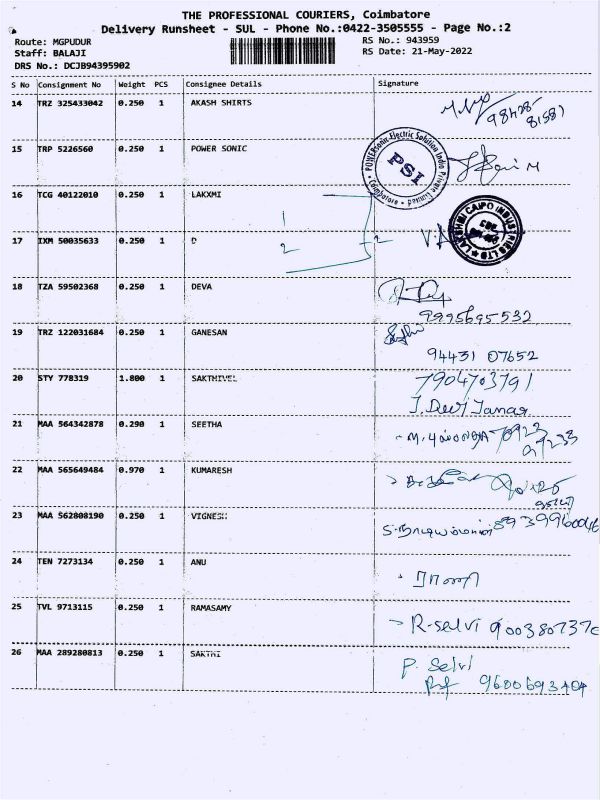 THE PROFESSIONAL COURIERS, Coimbatore
Delivery Runsheet - SUL - Phone No.:0422-3505555 - Page No.:2
Route: MGPUDUR RS No.: 943959
Staff: BALAJI RS Date: 21-May-2022
DRS No.: DCJB94395902
S No Consignment No Weight PCS Consignee Details Signature
14 TRZ 325433042 0.250 1 AKASH SHIRTS
98428
81581
15 TRP 5226560 0.250 1 POWER SONIC
POWERsonic Electric Solution India Private Limited
PSI
Coimbatore
16 TCG 40122010 0.250 1 LAKXMI
1
2
2
LAKSHMI CAIPO INDUSTRIES LTD
17 IXM 50035633 0.250 1 D
18 TZA 59502368 0.250 1 DEVA
9995695532
19 TRZ 122031684 0.250 1 GANESAN
94431 07652
20 STY 778319 1.800 1 SAKTHIVEL
7904703791
J. Devi
21 MAA 564342878 0.290 1 SEETHA
22 MAA 565649484 0.970 1 KUMARESH
23 MAA 562808190 0.250 1 VIGNESH
24 TEN 7273134 0.250 1 ANU
25 TVL 9713115 0.250 1 RAMASAMY
R-selvi
26 MAA 289280813 0.250 1 SAKTHI
P. Selvi
9600693404